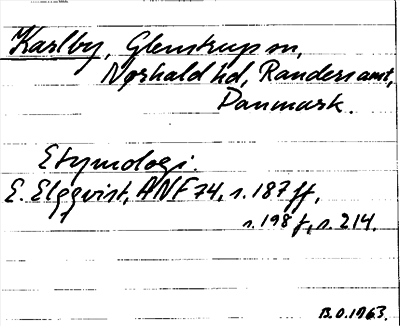 Karlby, Glenstrup sn,
Nørhald hd, Randers amt,
Danmark.
Etymologi.
E. Elgqvist, ANF 74, s. 187 ff,
s. 198 f, s. 214.
B.O. 1963.